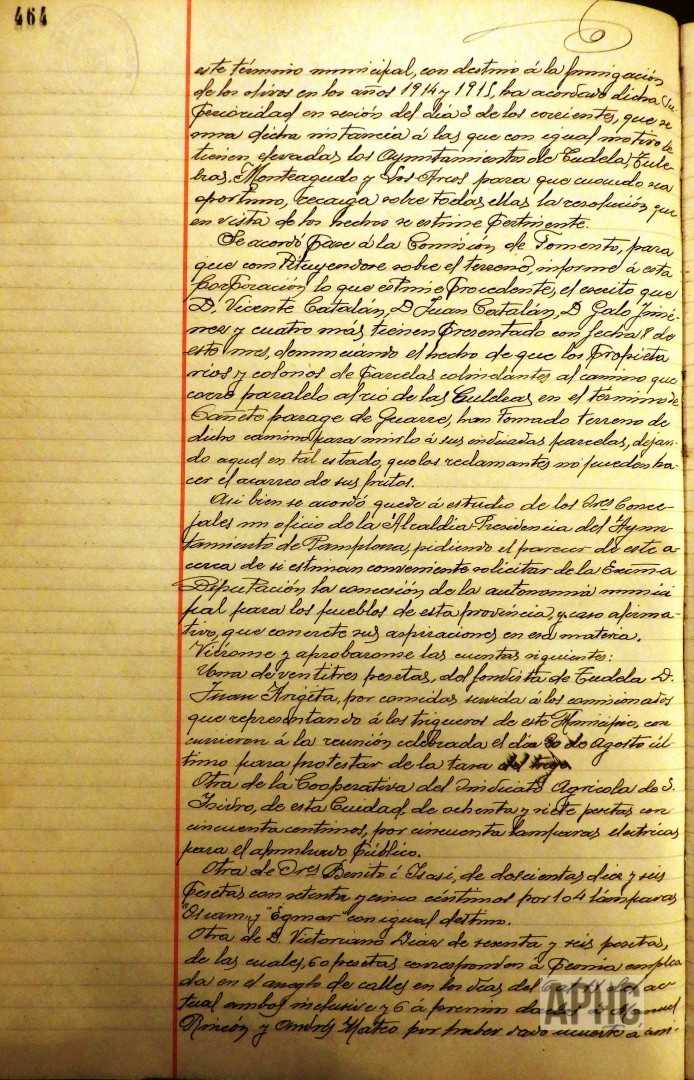 464
este término municipal, con destino á la fumigación
de los olivos en los años 1914 y 1915, ha acordado dicha Su-
perioridad en sesión del día 3 de los corrientes, que se
una dicha instancia á las que con igual motivo
tienen elevadas los Ayuntamientos de Tudela, Tule-
bras, Monteagudo y Los Arcos para que cuando sea
oportuno, recaiga sobre todas ellas la resolución que
en vista de los hechos se estime pertinente.
Se acordó pase á la Comisión de Fomento, para
que constituyendose sobre el terreno, informe á esta
Corporación lo que estime procedente, el escrito que
D. Vicente Catalán, D. Juan Catalán, D. Galo Jimé-
nez y cuatro más, tienen presentado con fecha 8 de
este mes, denunciando el hecho de que los propieta
rios y colonos de parcelas colindantes al camino que
corre paralelo al rio de las en el termino de
Cañete parage de Guarre, han tomado terreno de
dicho camino para unirlo á sus indicadas parcelas, dejan-
do aquel en tal estado, que los reclamantes no pueden ha-
cer el acarreo de sus frutos.
Asi bien se acordó quede á estudio de los Sres. Conce-
jales un oficio de la Alcaldia-Presidencia del Ayun-
tamiento de Pamplona, pidiendo el parecer de este a-
cerca de si estiman conveniente solicitar de la Excma
Diputación la concesión de la autonomía munici
pal para los pueblos de esta provincia, y caso afirma-
tivo, que concrete sus aspiraciones en esa materia.
Vieronse y aprobaronse las cuentas siguientes:
Una de ventitres pesetas, del fondista de Tudela D.
Juan Arigeta, por comidas servida á los comisionados
que representando á los trigueros de este Municipio, con
currieron á la reunión celebrada el día 30 de Agosto úl-
timo para protestar de la tasa del trigo
Otra de la Cooperativa del Sindicato Agricola de S.
Isidro, de esta Ciudad, de ochenta y siete pesetas con
cincuenta centimos, por cincuenta lamparas electricas
para el alumbrado público.
Otra de Sres Benito é Isasi, de doscientas diez y seis
pesetas con setenta y cinco céntimos por 104 lámparas
"Osram" y "Egmar" con igual destino.
Otra de D. Victoriano Diaz de sesenta y seis pesetas,
de las cuales, 60 pesetas corresponden á peonia emplea
da en el arreglo de calles en los días del ac-
tual ambos inclusive y 6 á premio á Manuel
Rincón y Andrés Mateo por haber dado muerte a
APHC